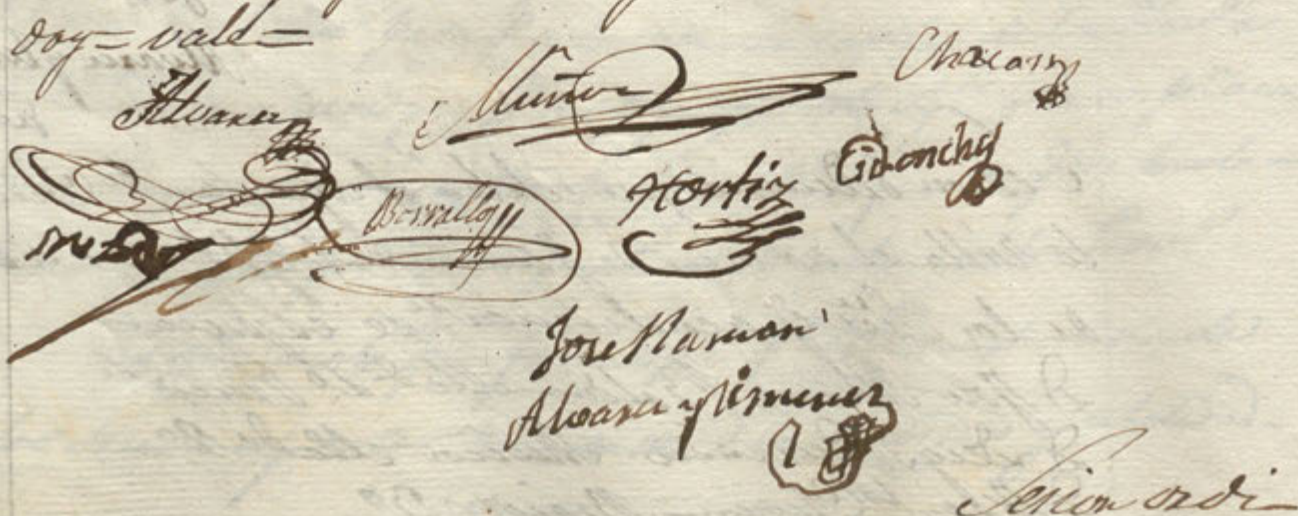 doy = vald =
Alvarez
Muñoz
Chacon
Borrallo
Hortiz
Jose Ramon
Alvarez y Jimenez
Sesion ordi